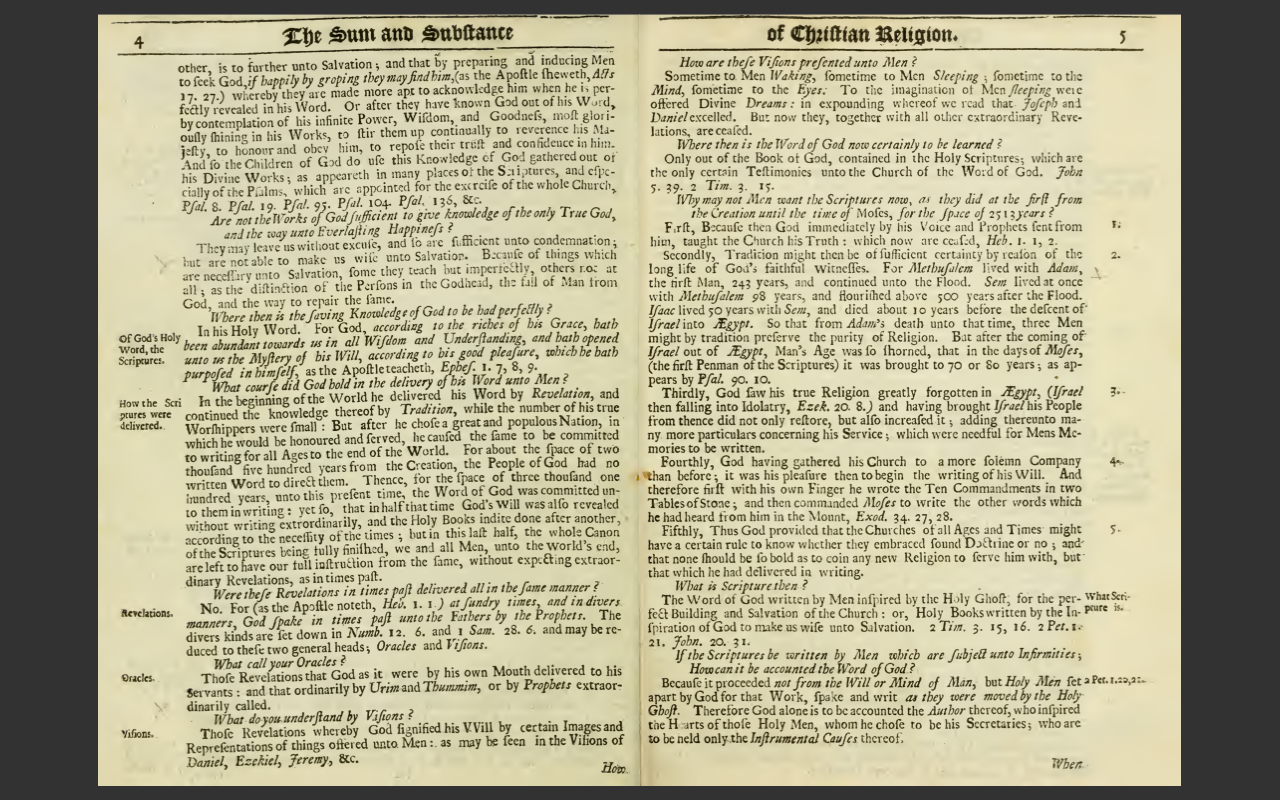 4
The Sum and Substance
other, is to further unto Salvation; and that by preparing and inducing Men
to ſeek God, if happily by groping they may find him, (as the Apoſtle ſheweth, Acts
17. 27.) whereby they are made more apt to acknowledge him when he is per-
fectly revealed in his Word. Or after they have known God out of his Word,
by contemplation of his infinite Power, Wiſdom, and Goodneſs, moſt glori-
ouſly ſhining in his Works, to ſtir them up continually to reverence his Ma-
jeſty, to honour and obey him, to repoſe their truſt and confidence in him.
And ſo the Children of God do uſe this Knowledge of God gathered out of
his Divine Works; as appeareth in many places of the Scriptures, and eſpe-
cially of the Pſalms, which are appointed for the exerciſe of the whole Church,
Pſal. 8. Pſal. 19. Pſal. 95. Pſal. 104. Pſal. 136, &c.
Are not the Works of God ſufficient to give knowledge of the only True God,
and the way unto Everlaſting Happineſs ?
They may leave us without excuſe, and ſo are ſufficient unto condemnation;
but are not able to make us wiſe unto Salvation. Becauſe of things which
are neceſſary unto Salvation, ſome they teach but imperfectly, others not at
all; as the diſtinction of the Perſons in the Godhead, the fall of Man from
God, and the way to repair the ſame.
Where then is the ſaving Knowledge of God to be had perfectly ?
Of God's Holy
Word, the
Scriptures.
In his Holy Word. For God, according to the riches of his Grace, hath
been abundant towards us in all Wiſdom and Underſtanding, and hath opened
unto us the Myſtery of his Will, according to his good pleaſure, which he hath
purpoſed in himſelf, as the Apoſtle teacheth, Epheſ. 1. 7, 8, 9.
What courſe did God hold in the delivery of his Word unto Men ?
How the Scri
ptures were
delivered.
In the beginning of the World he delivered his Word by Revelation, and
continued the knowledge thereof by Tradition, while the number of his true
Worſhippers were ſmall : But after he choſe a great and populous Nation, in
which he would be honoured and ſerved, he cauſed the ſame to be committed
to writing for all Ages to the end of the World. For about the ſpace of two
thouſand five hundred years from the Creation, the People of God had no
written Word to direct them. Thence, for the ſpace of three thouſand one
hundred years, unto this preſent time, the Word of God was committed un-
to them in writing : yet ſo, that in half that time God's Will was alſo revealed
without writing extrordinarily, and the Holy Books indite done after another,
according to the neceſſity of the times; but in this laſt half, the whole Canon
of the Scriptures being fully finiſhed, we and all Men, unto the World's end,
are left to have our full inſtruction from the ſame, without expecting extraor-
dinary Revelations, as in times paſt.
Were theſe Revelations in times paſt delivered all in the ſame manner ?
Revelations.
No. For (as the Apoſtle noteth, Heb. 1. 1) at ſundry times, and in divers
manners, God ſpake in times paſt unto the Fathers by the Prophets. The
divers kinds are ſet down in Numb. 12. 6. and 1 Sam. 28. 6. and may be re-
duced to theſe two general heads; Oracles and Viſions.
What call your Oracles ?
Oracles.
Thoſe Revelations that God as it were by his own Mouth delivered to his
Servants : and that ordinarily by Urim and Thummim, or by Prophets extraor-
dinarily called.
What do you underſtand by Viſions ?
Viſions.
Thoſe Revelations whereby God ſignified his VVill by certain Images and
Repreſentations of things offered unto Men : as may be ſeen in the Viſions of
Daniel, Ezekiel, Jeremy, &c.
How
of Chriſtian Religion.
5
How are theſe Viſions preſented unto Men ?
Sometime to Men Waking, ſometime to Men Sleeping ; ſometime to the
Mind, ſometime to the Eyes: To the imagination of Men ſleeping were
offered Divine Dreams : in expounding whereof we read that Joſeph and
Daniel excelled. But now they, together with all other extraordinary Reve-
lations, are ceaſed.
Where then is the Word of God now certainly to be learned ?
Only out of the Book of God, contained in the Holy Scriptures; which are
the only certain Teſtimonies unto the Church of the Word of God. John
5. 39. 2 Tim. 3. 15.
Why may not Men want the Scriptures now, as they did at the firſt from
the Creation until the time of Moſes, for the ſpace of 2513 years ?
Firſt, Becauſe then God immediately by his Voice and Prophets ſent from
him, taught the Church his Truth : which now are ceaſed, Heb. 1. 1, 2.
1.
Secondly, Tradition might then be of ſufficient certainty by reaſon of the
long life of God's faithful Witneſſes. For Methuſalem lived with Adam,
the firſt Man, 243 years, and continued unto the Flood. Sem lived at once
with Methuſalem 98 years, and flouriſhed above 500 years after the Flood.
Iſaac lived 50 years with Sem, and died about 10 years before the deſcent of
Iſrael into Ægypt. So that from Adam's death unto that time, three Men
might by tradition preſerve the purity of Religion. But after the coming of
Iſrael out of Ægypt, Man's Age was ſo ſhorned, that in the days of Moſes,
(the firſt Penman of the Scriptures) it was brought to 70 or 80 years; as ap-
pears by Pſal. 90. 10.
2.
Thirdly, God ſaw his true Religion greatly forgotten in Ægypt, (Iſrael
then falling into Idolatry, Ezek. 20. 8.) and having brought Iſrael his People
from thence did not only reſtore, but alſo increaſed it; adding thereunto ma-
ny more particulars concerning his Service; which were needful for Mens Me-
mories to be written.
3.
Fourthly, God having gathered his Church to a more ſolemn Company
than before; it was his pleaſure then to begin the writing of his Will. And
therefore firſt with his own Finger he wrote the Ten Commandments in two
Tables of Stone; and then commanded Moſes to write the other words which
he had heard from him in the Mount, Exod. 34. 27, 28.
4.
Fifthly, Thus God provided that the Churches of all Ages and Times might
have a certain rule to know whether they embraced ſound Doctrine or no; and
that none ſhould be ſo bold as to coin any new Religion to ſerve him with, but
that which he had delivered in writing.
5.
What is Scripture then ?
The Word of God written by Men inſpired by the Holy Ghoſt, for the per-
fect Building and Salvation of the Church : or, Holy Books written by the In-
ſpiration of God to make us wiſe unto Salvation. 2 Tim. 3. 15, 16. 2 Pet. 1.
21. John. 20. 31.
What Scri-
pure is.
If the Scriptures be written by Men which are ſubject unto Infirmities;
How can it be accounted the Word of God ?
Becauſe it proceeded not from the Will or Mind of Man, but Holy Men ſet
apart by God for that Work, ſpake and writ as they were moved by the Holy
Ghoſt. Therefore God alone is to be accounted the Author thereof, who inſpired
the Hearts of thoſe Holy Men, whom he choſe to be his Secretaries; who are
to be held only the Inſtrumental Cauſes thereof.
2 Pet. 1.20,21.
When